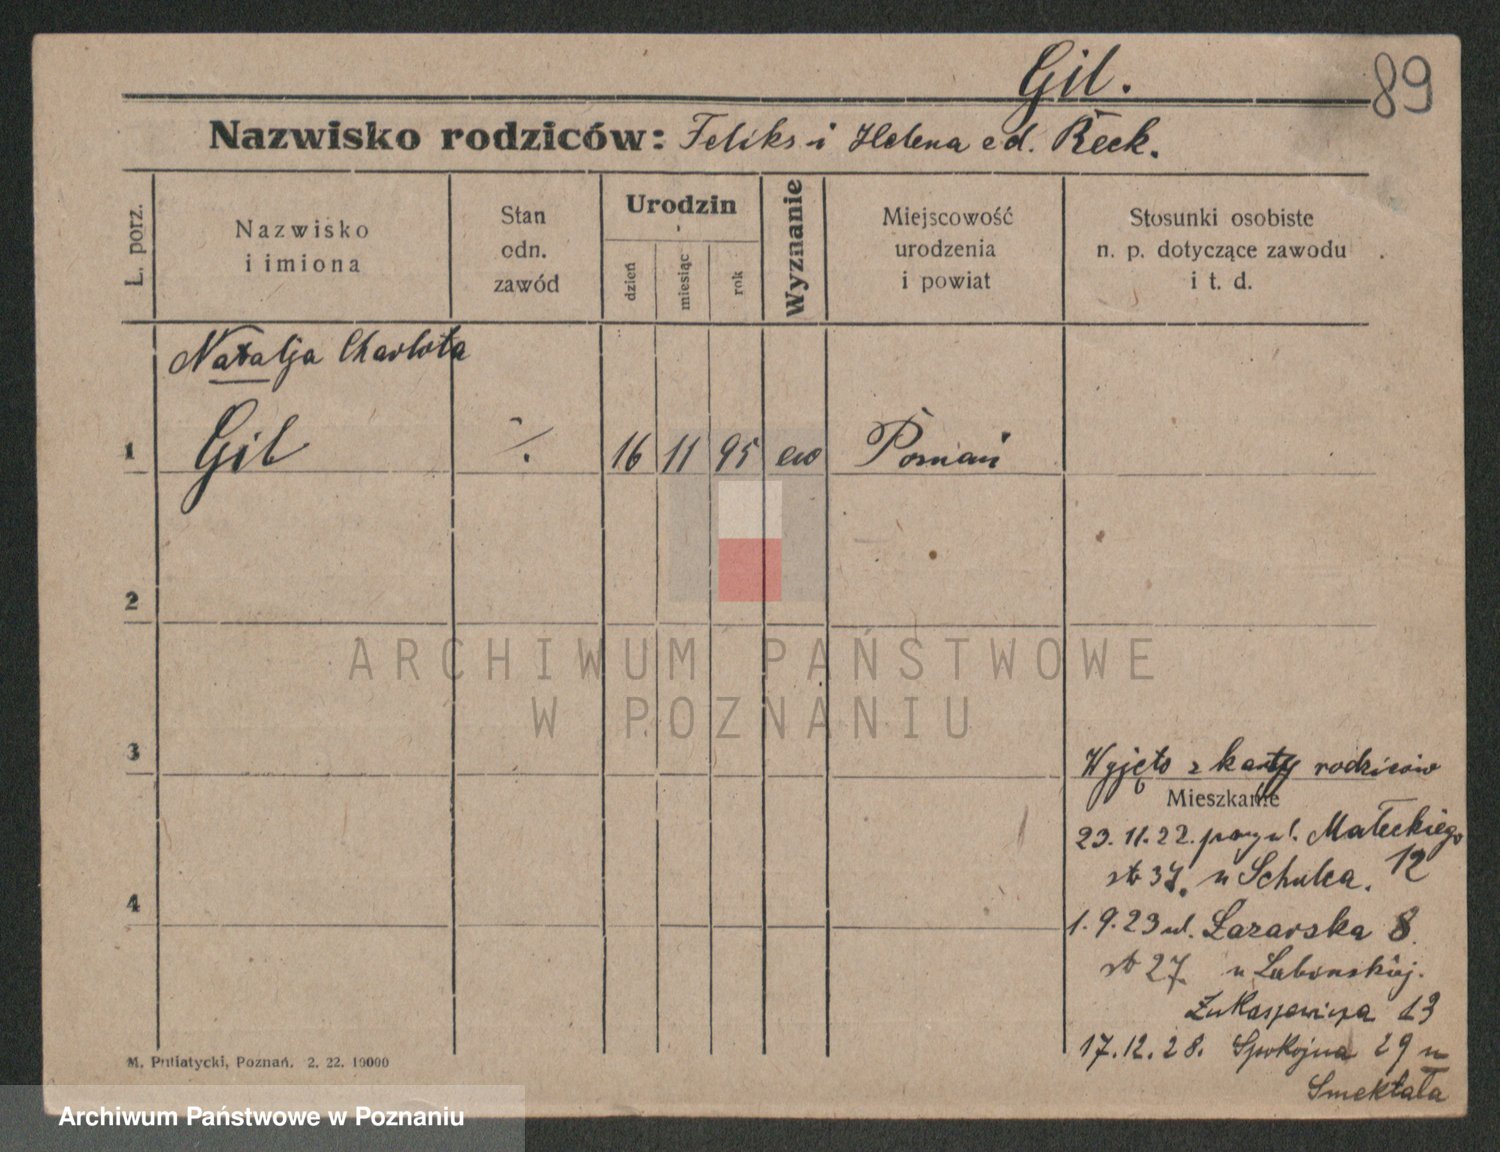 Gil.
89
Nazwisko rodziców: Feliks i Helena Reek.
L. porz.
Nazwisko
i imiona
Stan
odn.
zawód
Urodzin
dzień
miesiąc
rok
Wyznanie
Miejscowość
urodzenia
i powiat
Stosunki osobiste
n. p. dotyczące zawodu
i t. d.
Natalja Charlota
1 Gil ·/. 16 11 95 ew Poznań
2
3
4
Wyjęto z karty rodziców
Mieszkanie
23.11.22. ul. Małeckiego
str 37. u Schulca. 12
1.9.23 ul. Łazarska 8.
str 27 u Lubonskiej.
Łukaszewicza 13
17.12.28. Spokojna 29 u
Smektała
M. Putiatycki, Poznań. 2. 22. 10000
ARCHIWUM PAŃSTWOWE
W POZNANIU
Archiwum Państwowe w Poznaniu